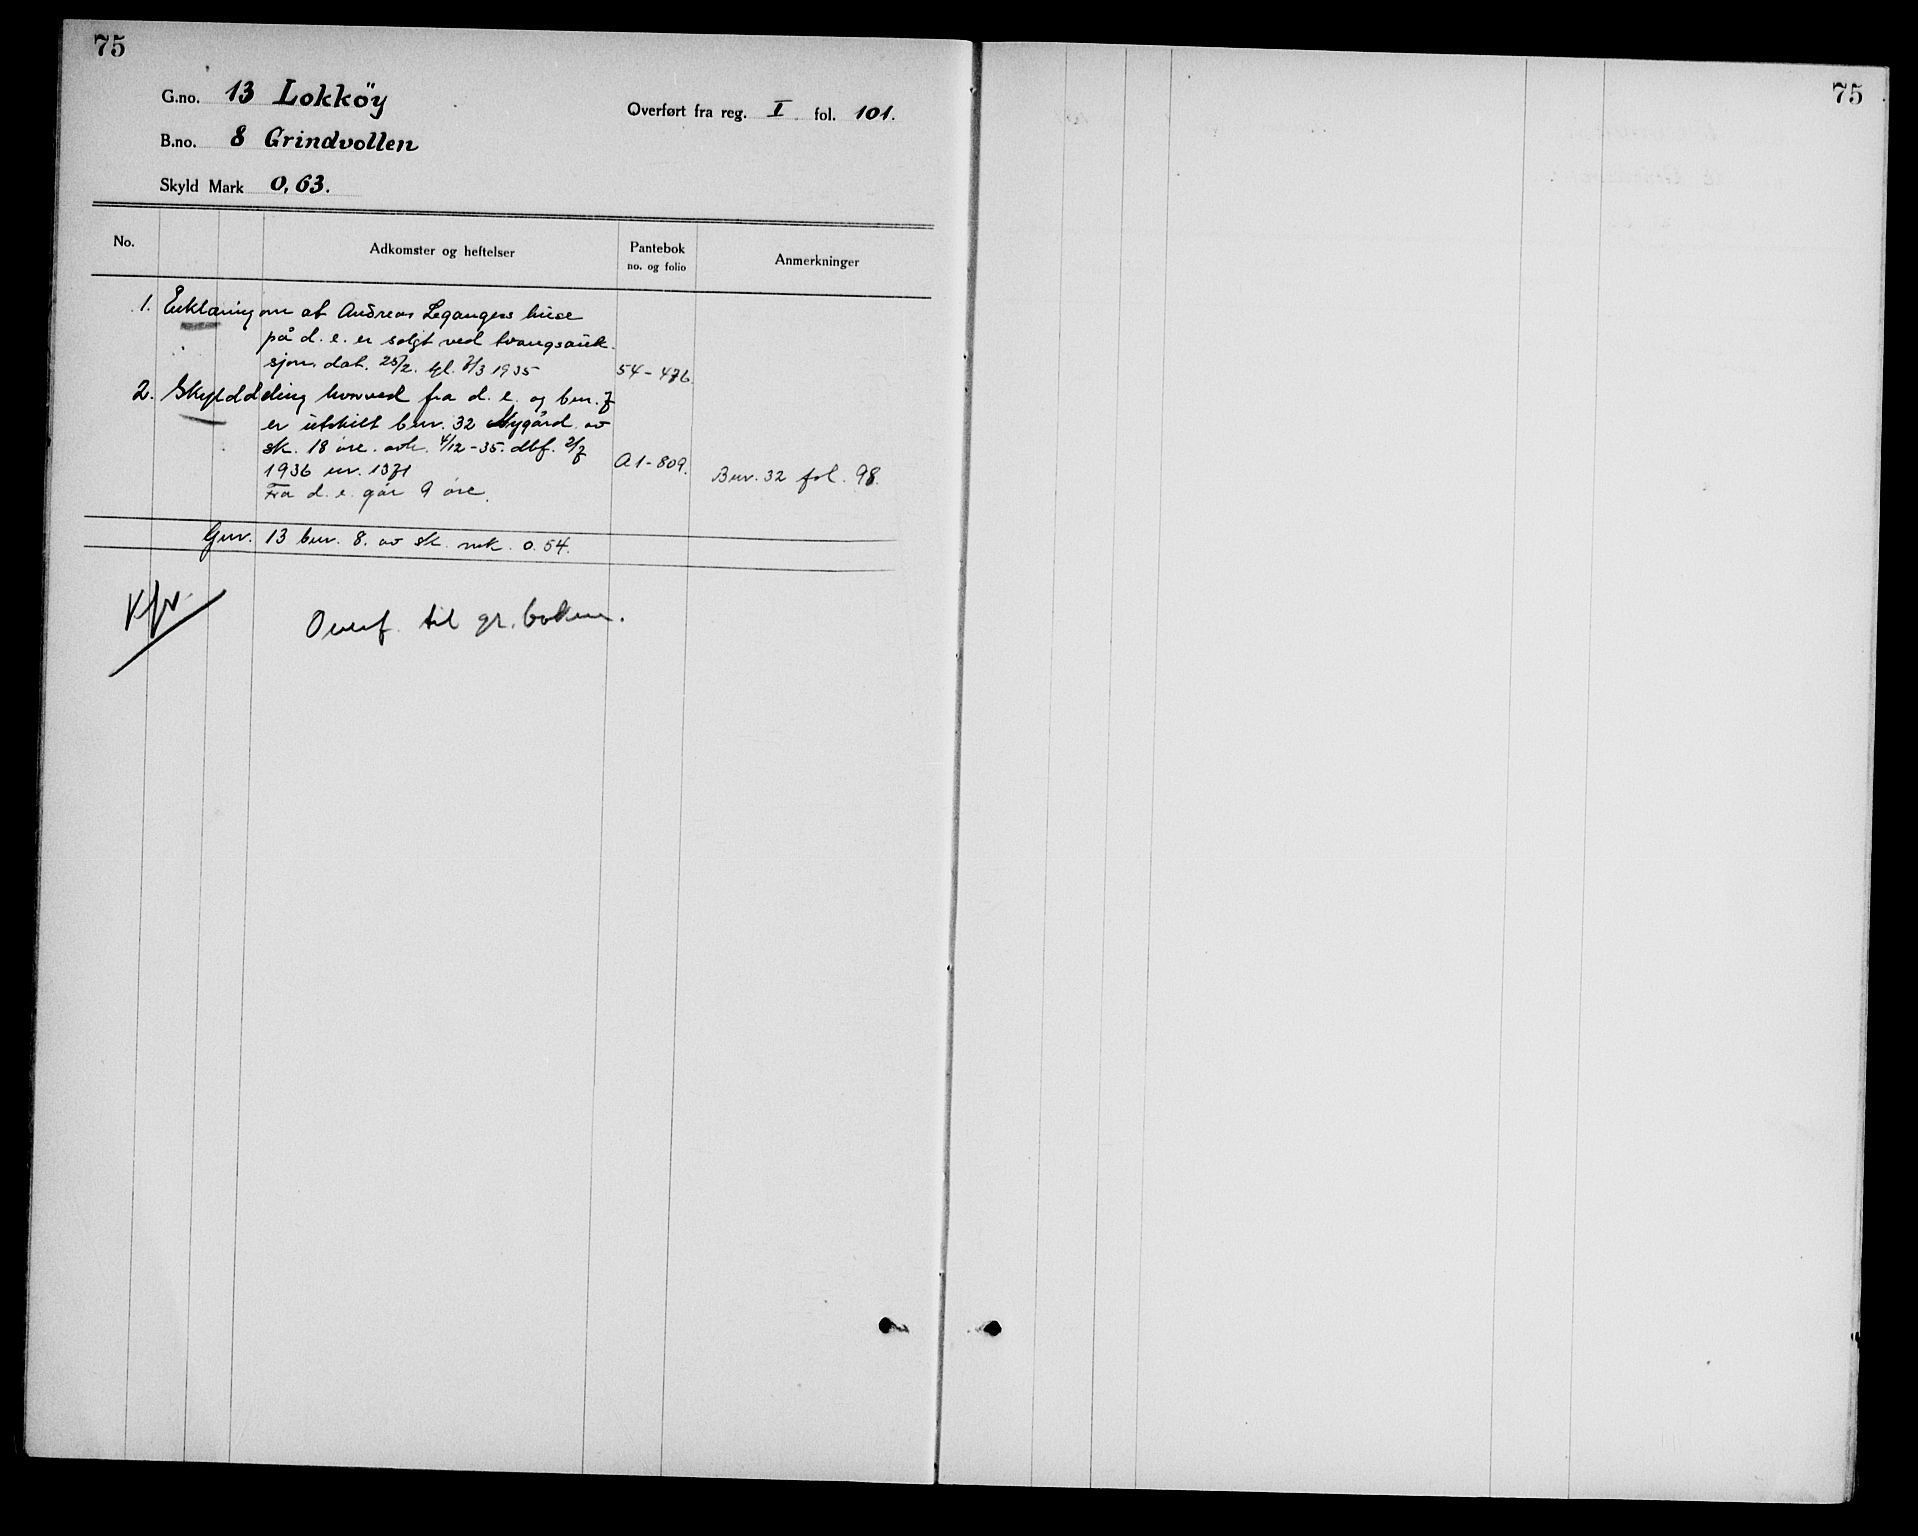 75
G.no. 13 Lokköy
Overført fra reg. I. fol. 101.
B.no. 8 Grindvollen
Skyld Mark 0,63.
No. Adkomster og heftelser Pantebok no. og folio Anmerkninger
1. Erklæring om at Andreas Legangers huse
på d. e. er solgt ved tvangsauk-
sjon. dat. 25/2. tgl. 7/3 1935 54-476.
2. Skylddeling hvorved fra d. e. og bnr. 7
er utskilt bnr. 32 Nygård av
sk. 18 øre. avh. 4/12-35. dbf. 2/7
1936 nr. 1371 A1-809. Bnr. 32 fol. 98.
Fra d. e. går 9 øre.
Gnr. 13 bnr. 8. av sk. mk. 0.54.
Kfr.
Overf. til gr. boken.
75